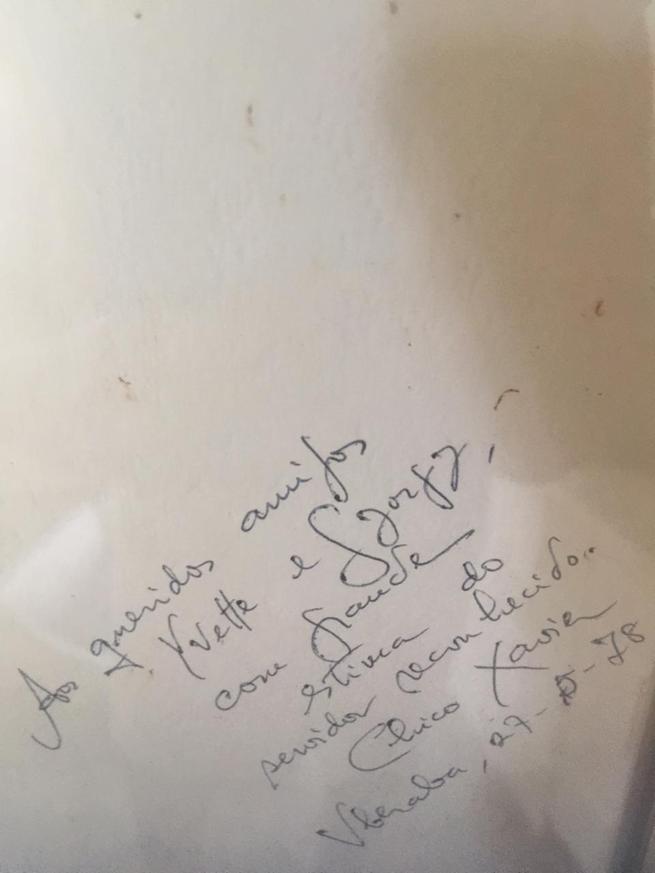 Aos queridos amigos
Yvette e
com grande
estima do
servidor reconhecido.
Chico Xavier
Uberaba, 27- -78